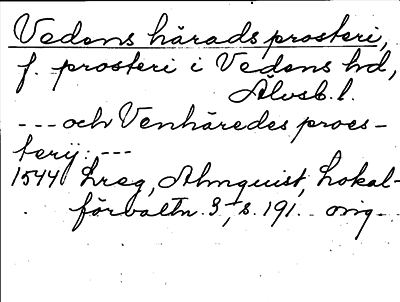 Vedens häradsprosteri,
f. prosteri i Vedens hd,
Älvsb. l.
--- och Venhäredes proes-
terij. ---
1544 Lreg, Almquist, Lokal-
förvaltn. 3, s. 191. orig.